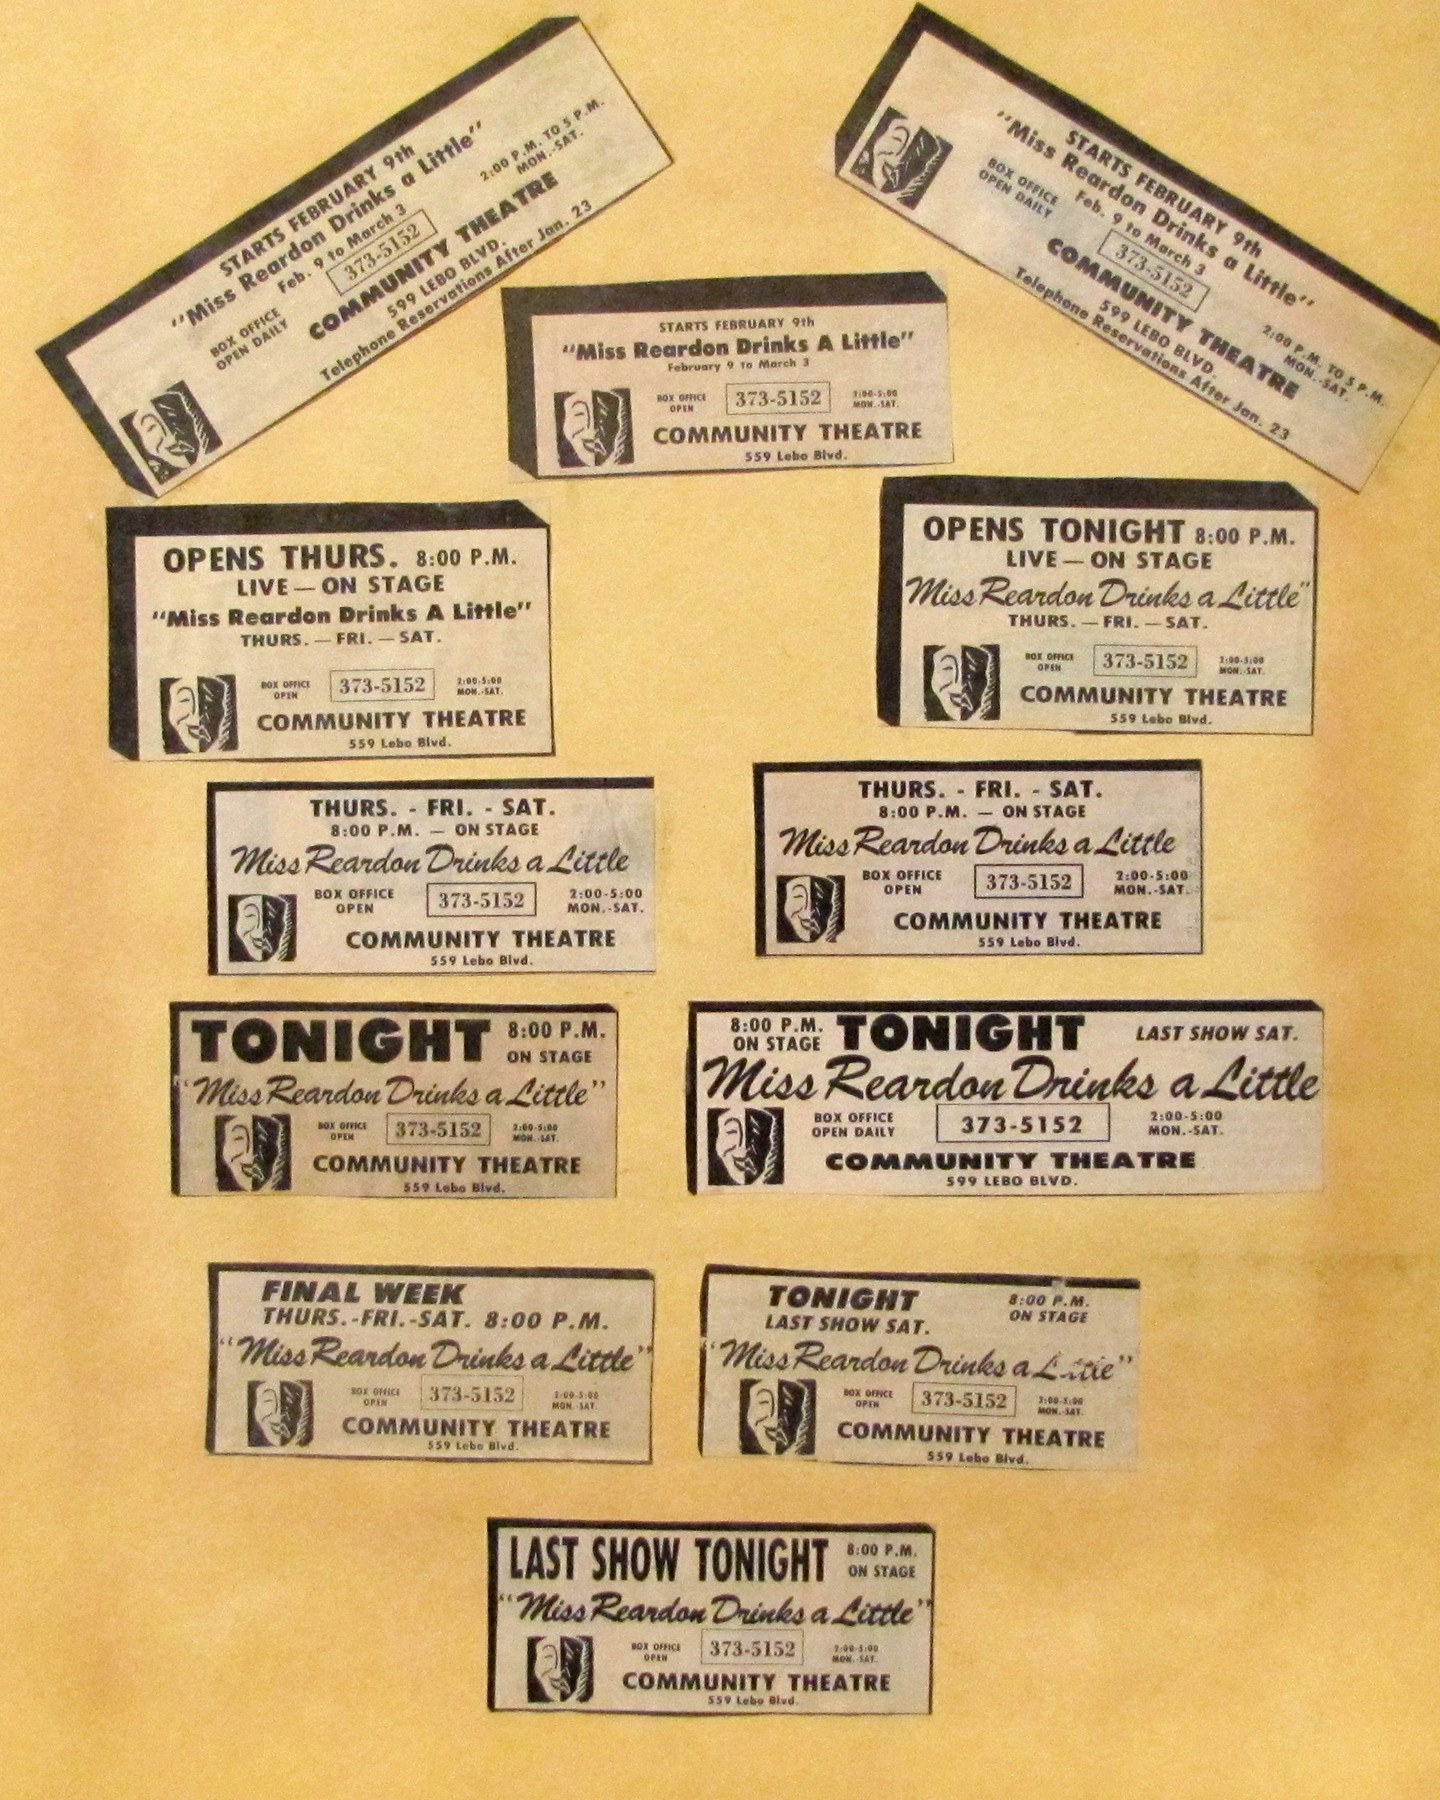 STARTS FEBRUARY 9th
"Miss Reardon Drinks a Little"
Feb. 9 to March 3
BOX OFFICE
OPEN DAILY
373-5152
2:00 P.M. TO 5 P.M.
MON.-SAT.
COMMUNITY THEATRE
599 LEBO BLVD.
Telephone Reservations After Jan. 23
STARTS FEBRUARY 9th
"Miss Reardon Drinks a Little"
Feb. 9 to March 3
BOX OFFICE
OPEN DAILY
373-5152
2:00 P.M. TO 5 P.M.
MON.-SAT.
COMMUNITY THEATRE
599 LEBO BLVD.
Telephone Reservations After Jan. 23
STARTS FEBRUARY 9th
"Miss Reardon Drinks A Little"
February 9 to March 3
BOX OFFICE
OPEN
373-5152
2:00-5:00
MON.-SAT.
COMMUNITY THEATRE
559 Lebo Blvd.
OPENS THURS. 8:00 P.M.
LIVE — ON STAGE
"Miss Reardon Drinks A Little"
THURS. — FRI. — SAT.
BOX OFFICE
OPEN
373-5152
2:00-5:00
MON.-SAT.
COMMUNITY THEATRE
559 Lebo Blvd.
OPENS TONIGHT 8:00 P.M.
LIVE — ON STAGE
Miss Reardon Drinks a Little"
THURS. — FRI. — SAT.
BOX OFFICE
OPEN
373-5152
2:00-5:00
MON.-SAT.
COMMUNITY THEATRE
559 Lebo Blvd.
THURS. - FRI. - SAT.
8:00 P.M. — ON STAGE
Miss Reardon Drinks a Little
BOX OFFICE
OPEN
373-5152
2:00-5:00
MON.-SAT.
COMMUNITY THEATRE
559 Lebo Blvd.
THURS. - FRI. - SAT.
8:00 P.M. — ON STAGE
Miss Reardon Drinks a Little
BOX OFFICE
OPEN
373-5152
2:00-5:00
MON.-SAT.
COMMUNITY THEATRE
559 Lebo Blvd.
TONIGHT 8:00 P.M.
ON STAGE
"Miss Reardon Drinks a Little"
BOX OFFICE
OPEN
373-5152
2:00-5:00
MON.-SAT.
COMMUNITY THEATRE
559 Lebo Blvd.
8:00 P.M.
ON STAGE
TONIGHT
LAST SHOW SAT.
Miss Reardon Drinks a Little
BOX OFFICE
OPEN DAILY
373-5152
2:00-5:00
MON.-SAT.
COMMUNITY THEATRE
599 LEBO BLVD.
FINAL WEEK
THURS.-FRI.-SAT. 8:00 P.M.
"Miss Reardon Drinks a Little"
BOX OFFICE
OPEN
373-5152
2:00-5:00
MON.-SAT.
COMMUNITY THEATRE
559 Lebo Blvd.
TONIGHT
LAST SHOW SAT.
8:00 P.M.
ON STAGE
"Miss Reardon Drinks a Little"
BOX OFFICE
OPEN
373-5152
2:00-5:00
MON.-SAT.
COMMUNITY THEATRE
559 Lebo Blvd.
LAST SHOW TONIGHT
8:00 P.M.
ON STAGE
"Miss Reardon Drinks a Little"
BOX OFFICE
OPEN
373-5152
2:00-5:00
MON.-SAT.
COMMUNITY THEATRE
559 Lebo Blvd.